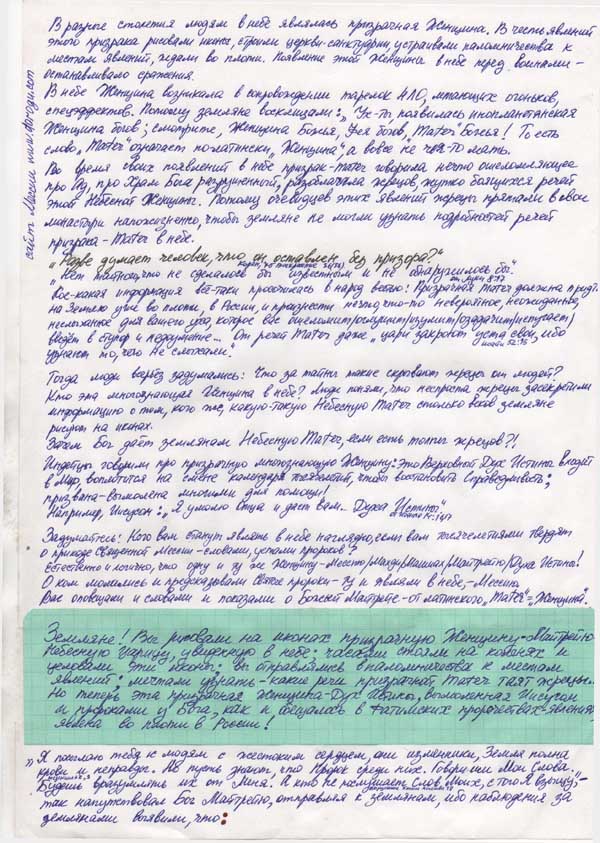 В разные столетия людям в небе являлась призрачная Женщина. В честь явлений
этого призрака рисовали иконы, строили церкви-санктуарии, устраивали паломничества к
местам явлений, ждали во плоти. Появление этой Женщины в небе перед воинами -
останавливало сражения.
В небе Женщина возникала в сопровождении тарелок НЛО, мигающих огоньков,
спецэффектов. Потому земляне восклицали: появилась инопланетянская
Женщина богов; смотрите, Женщина Божья, Фея богов, "Mater" Божья! То есть
слово "Mater" означает по-латински "Женщина", а вовсе не чья-то мать.
Во время своих появлений в небе призрак-mater говорила нечто ошеломляющее
про Ад, про Храм Бога разрушенный, разоблачала жрецов, жутко боящихся речей
этой Небесной Женщины. Потому очевидцев этих явлений жрецы прятали в свои
монастыри напожизненно, чтобы земляне не могли узнать подробностей речей
призрака - mater в небе.
"Разве думает человек, что он оставлен без призора?"
"Нет тайного, что не сделалось бы известным и не обнаружилось бы"
Кое-какая информация всё-таки просочилась в народ веками: Призрачная mater должна придти
на Землю уже во плоти, в России, и произнести нечто что-то невероятное, неожиданное,
неслыханное для вашего уха, которое вас ошеломит/
введёт в ступор и недоумение... От речей Mater даже "цари закроют уста свои, ибо
узнают то, чего не слыхали."
Тогда люди всерьёз задумались: Что за тайны такие скрывают жрецы от людей?
Кто эта многознающая Женщина в небе? Люди поняли, что неспроста жрецы засекретили
информацию о том, кого же, какую-такую Небесную Mater столько веков земляне
рисуют на иконах.
Зачем Бог даёт землянам Небесную Mater, если есть толпа жрецов?!
Индейцы говорили про призрачную многознающую Женщину: это Верховный Дух Истины входит
в Мир, воплотится на смене календаря тысячелетий, чтобы восстановить Справедливость;
призвана-вымолена многими для помощи!
Например, Иисусом: "Я умолю Отца и даст вам... Духа Истины"
Задумайтесь: Кого вам станут являть в небе наглядно, если вам тысячелетиями твердят
о приходе Священной Мессии - словами, устами пророков?
Естественно и логично, что одну и ту же Женщину-Мессию/Махди/Машиах/Майтрейю/Духа Истины!
О ком молились и предсказывали святые пророки - ту и являли в небе, - Мессию.
Вас оповещали и словами и показали о Божьей Майтрейе - от латинского "Mater" = "Женщина".
Земляне! Вы рисовали на иконах призрачную Женщину-Майтрейю
Небесную Царицу, увиденную в небе: часами стояли на коленях и
целовали эти иконы; вы отправлялись в паломничества к местам
явлений; мечтали узнать - какие речи призрачной mater таят жрецы...
Но теперь эта призрачная женщина-Дух явилась, вымоленная Иисусом
и пророками у Бога, как и обещалось в Фатимских пророчествах-явлениях,
явлена во плоти в России!
"Я посылаю тебя к людям с жестоким сердцем, они изменники, Земля полна
крови и неправды. Но пусть знают, что Пророк среди них. Говори им Мои Слова.
Будешь вразумлять их от Меня. А кто не послушает Слов Моих, с того Я взыщу," -
так напутствовал Бог Майтрейю, отправляя к землянам, ибо наблюдения за
землянами выявили, что: